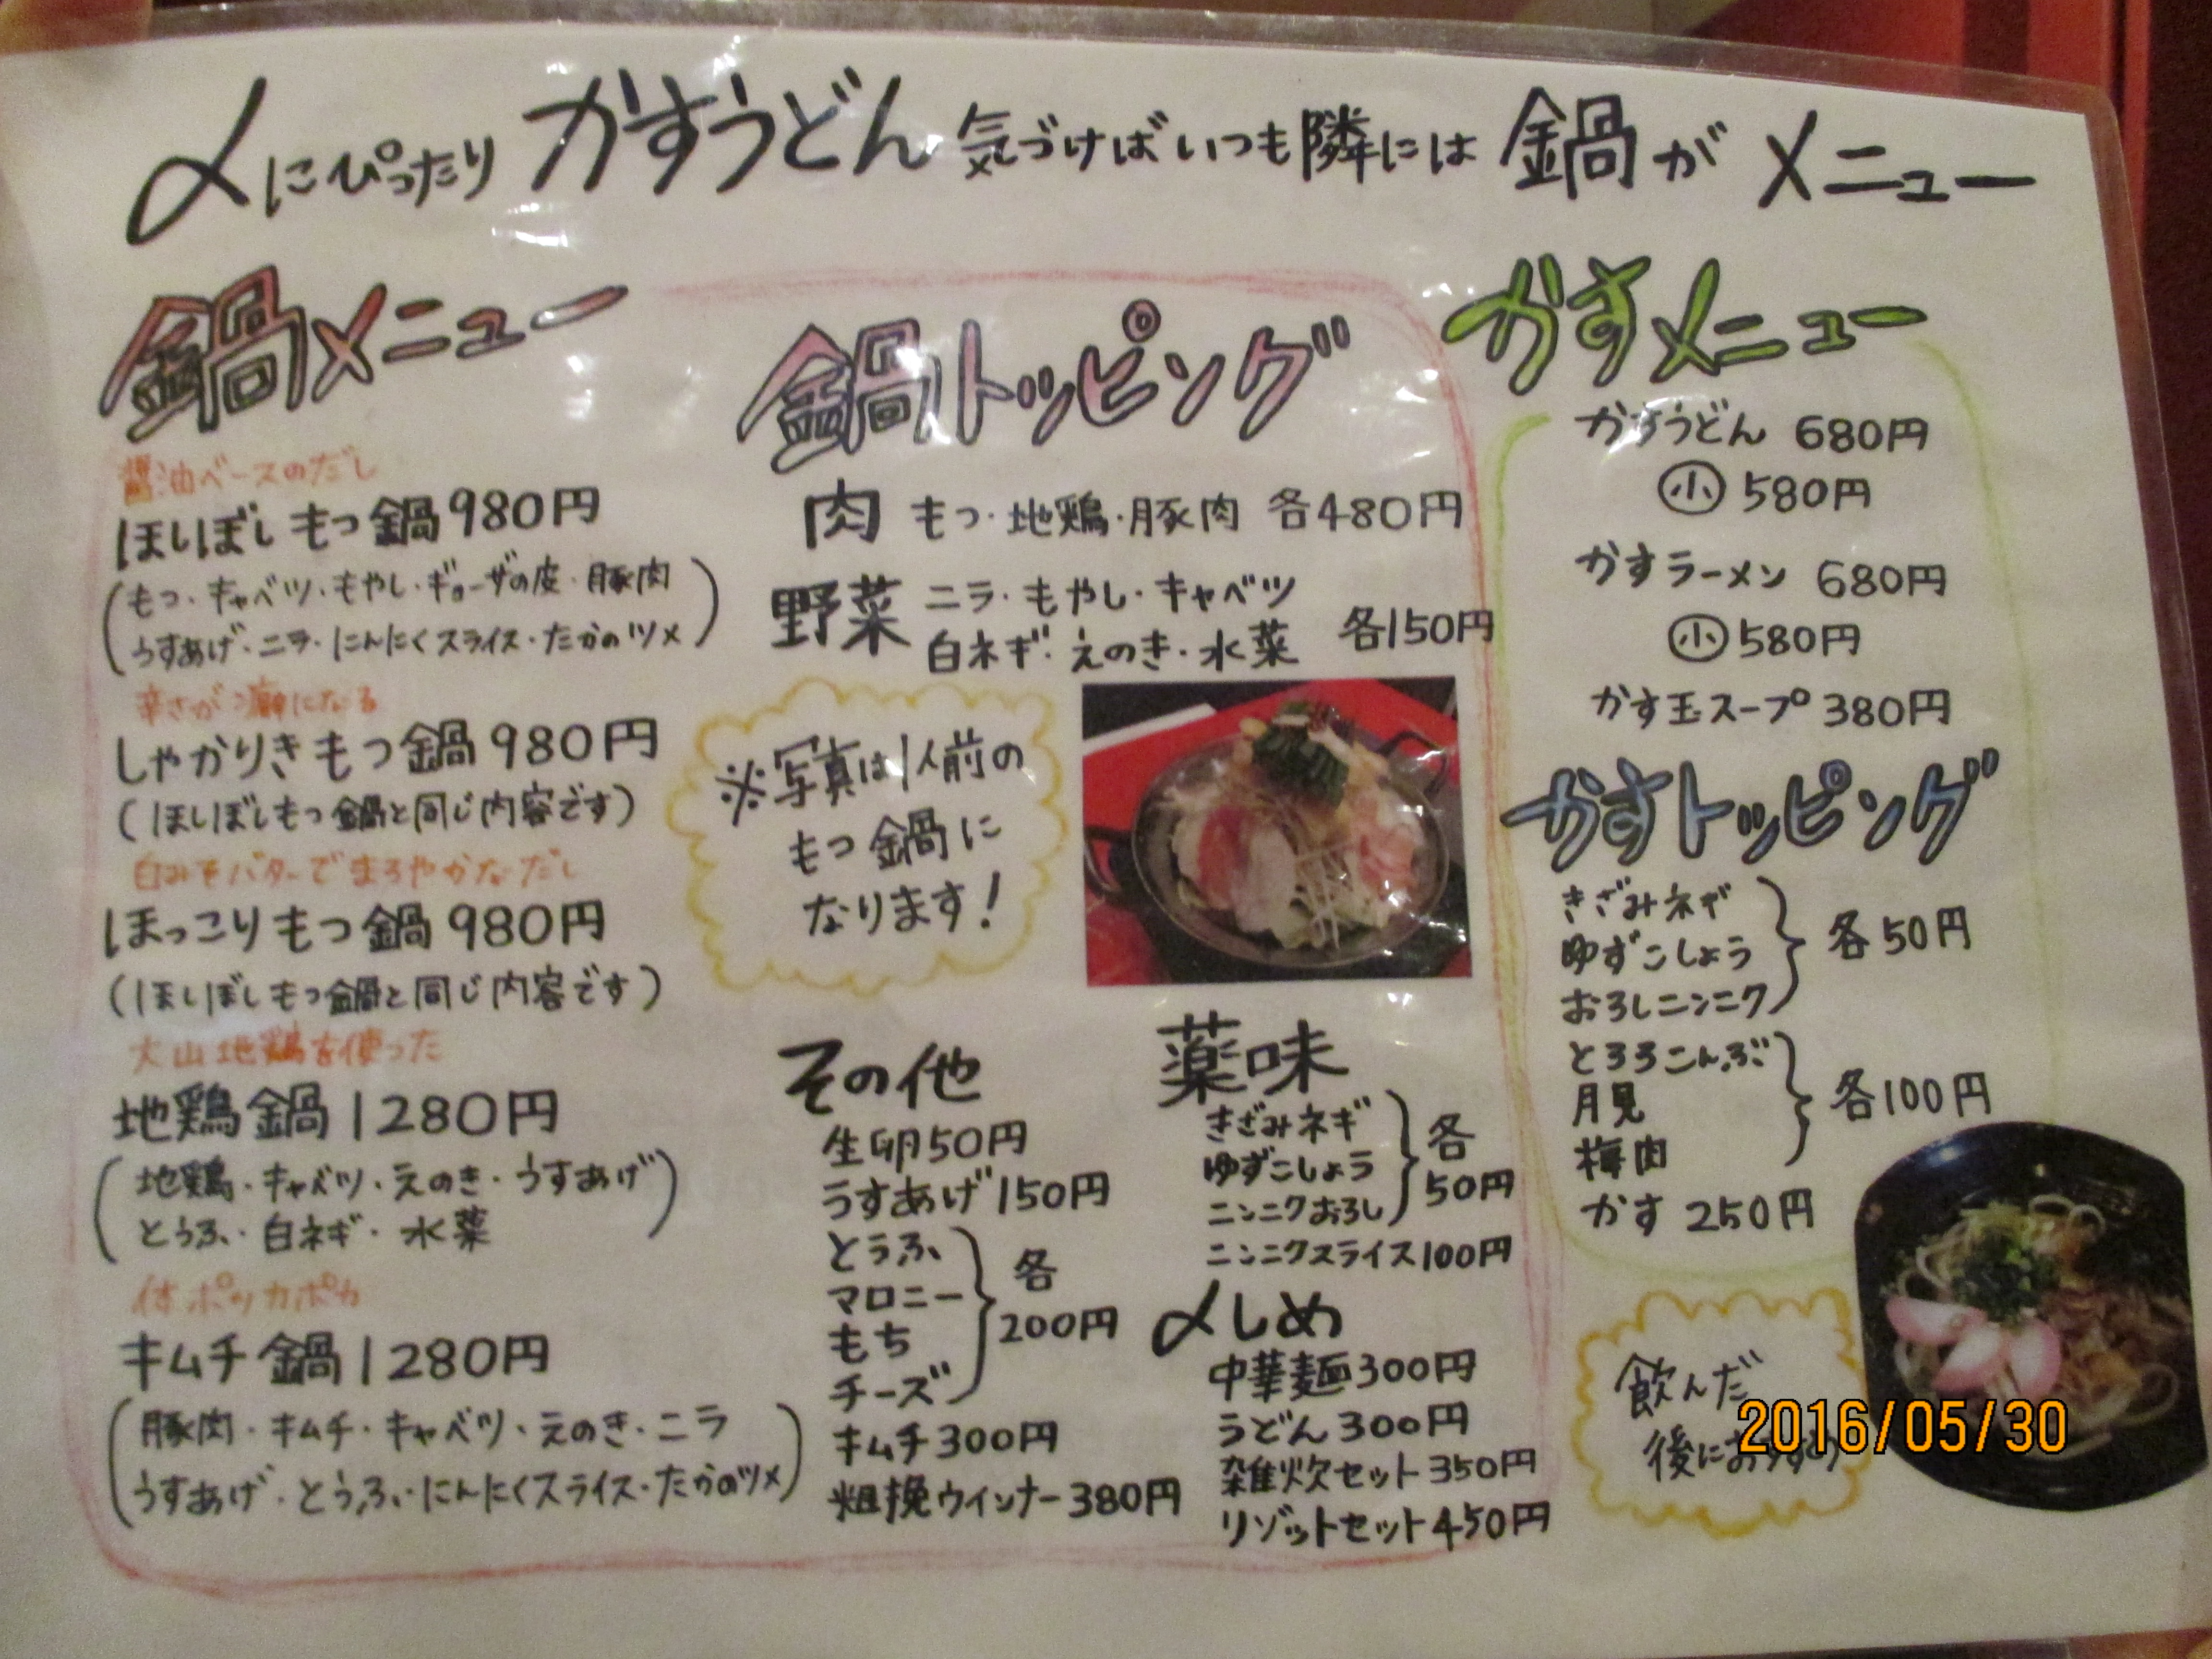 〆にぴったりかすうどん気づけばいつも隣には鍋がメニュー
鍋メニュー
醤油ベースのだし
ほしぼしもつ鍋980円
(もつ・キャベツ・もやし・ギョーザの皮・豚肉
うすあげ・ニラ・にんにくスライス・たかのツメ)
辛さが癖になる
しゃかりきもつ鍋980円
(ほしぼしもつ鍋と同じ内容です)
白みそバターでまろやかなだし
ほっこりもつ鍋980円
(ほしぼしもつ鍋と同じ内容です)
大山地鶏を使った
地鶏鍋1280円
(地鶏・キャベツ・えのき・うすあげ
とうふ・白ネギ・水菜)
体ポッカポカ
キムチ鍋1280円
(豚肉・キムチ・キャベツ・えのき・ニラ
うすあげ・とうふ・にんにくスライス・たかのツメ)
鍋トッピング
肉 もつ・地鶏・豚肉 各480円
野菜 ニラ・もやし・キャベツ
白ネギ・えのき・水菜 各150円
※写真は1人前の
もつ鍋に
なります!
その他
生卵50円
うすあげ150円
とうふ
マロニー
もち
チーズ
各
200円
キムチ300円
粗挽ウインナー380円
薬味
きざみネギ
ゆずこしょう
ニンニクおろし
各
50円
ニンニクスライス100円
〆しめ
中華麺300円
うどん300円
雑炊セット350円
リゾットセット450円
かすメニュー
かすうどん 680円
小 580円
かすラーメン 680円
小 580円
かす玉スープ 380円
かすトッピング
きざみネギ
ゆずこしょう
おろしニンニク
各50円
とろろこんぶ
月見
梅肉
各100円
かす 250円
飲んだ
後におすすめ
2016/05/30